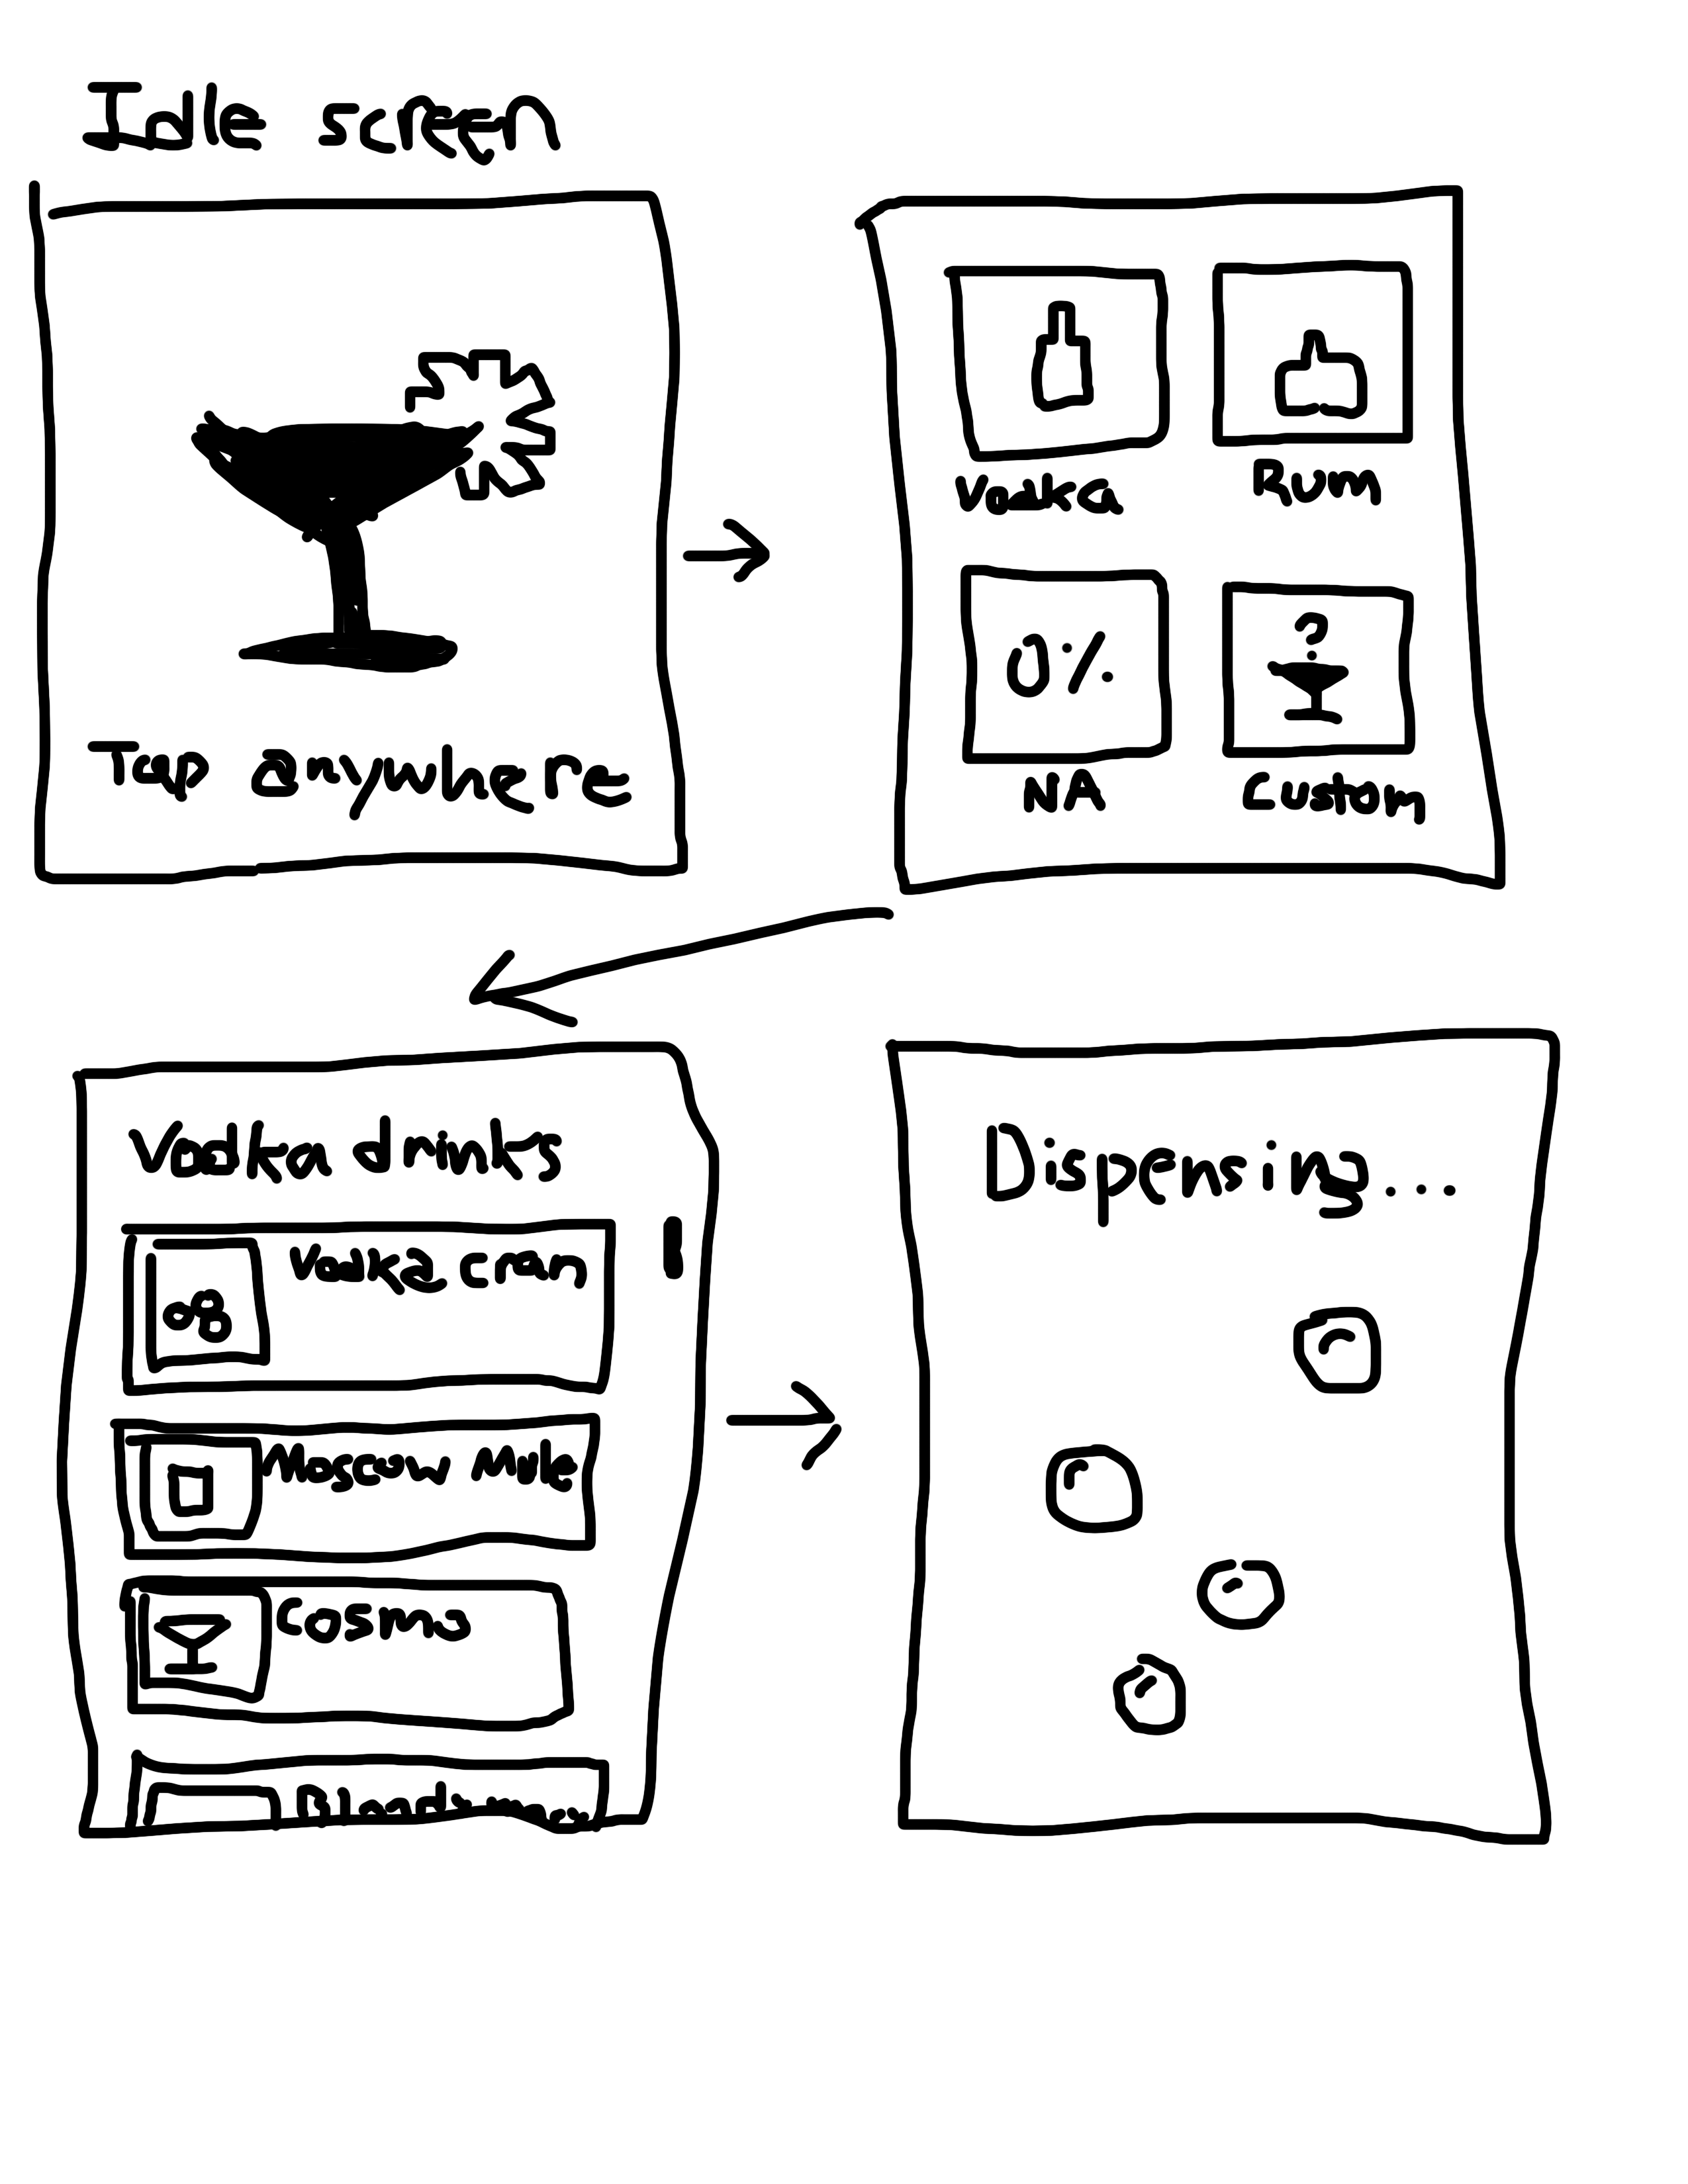 Idle screen
Tap anywhere
Vodka
Rum
0%
NA
?
Custom
Vodka drinks
Vodka cran
Moscow Mule
Cosmo
Dispensing...